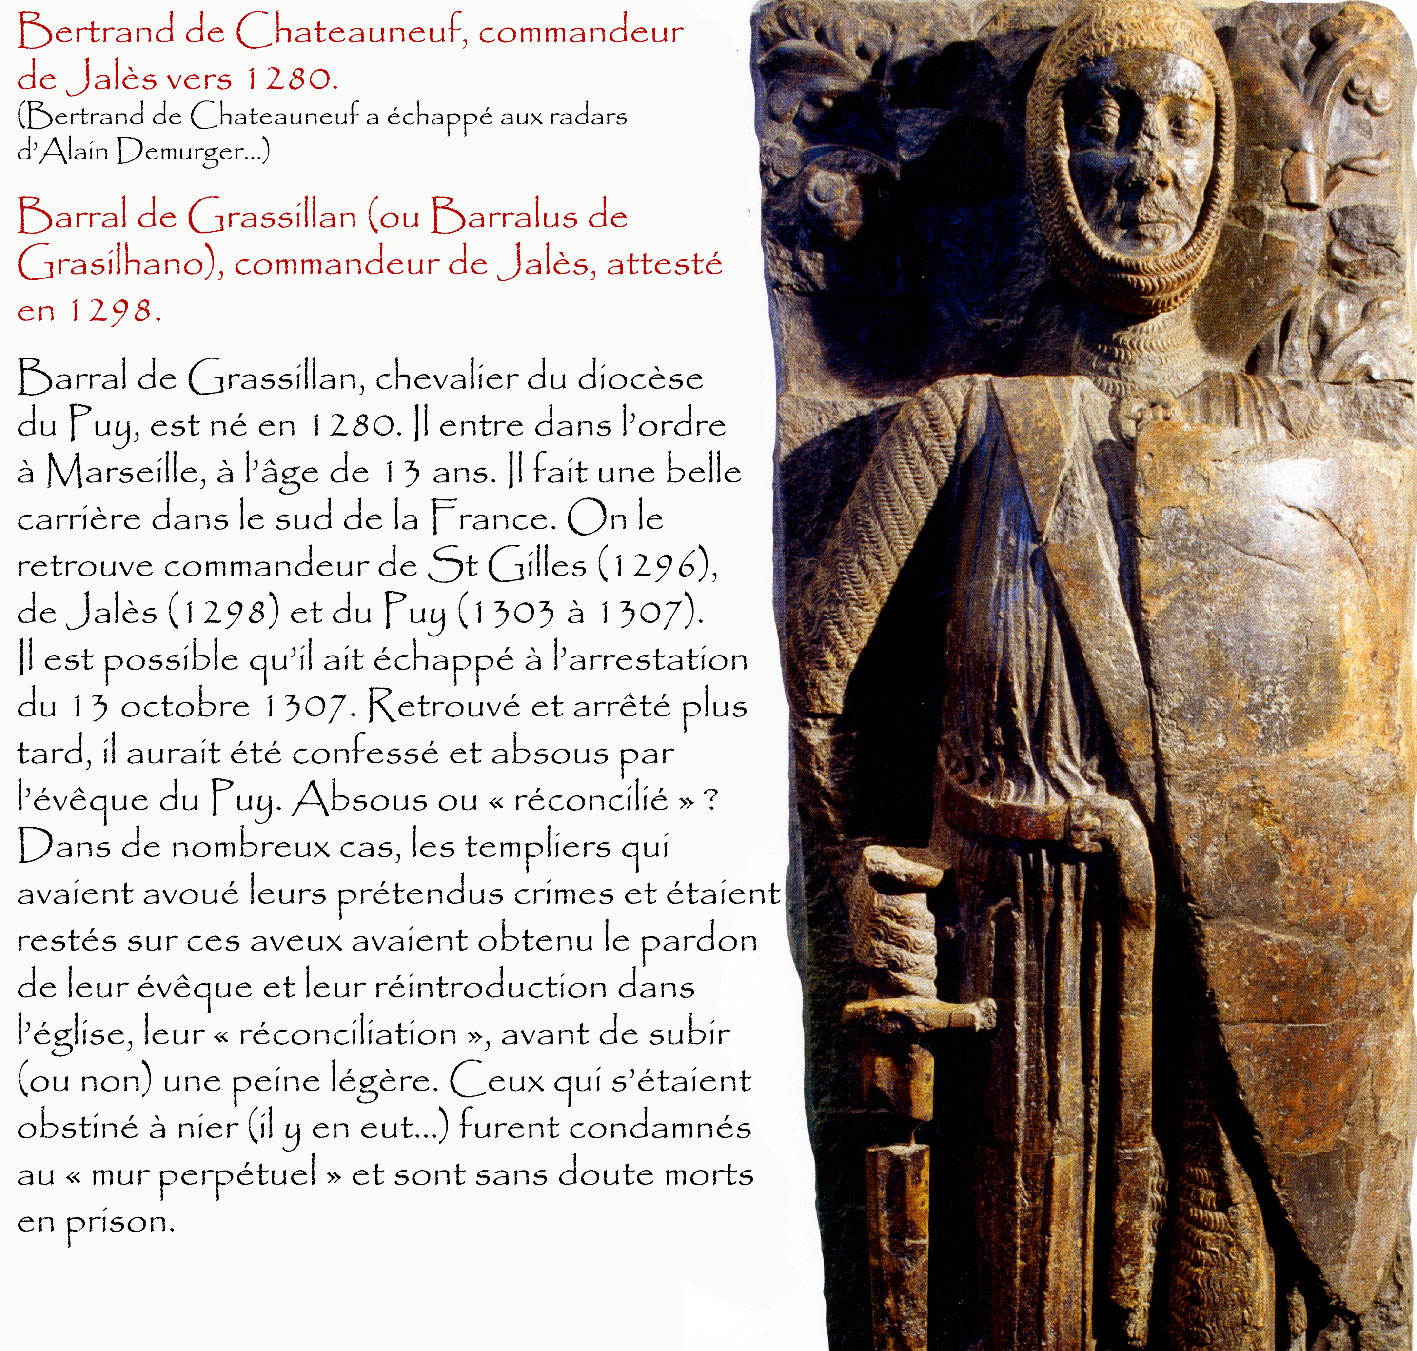 Bertrand de Chateauneuf, commandeur
de Jalès vers 1280.
(Bertrand de Chateauneuf a échappé aux radars
d'Alain Demurger...)
Barral de Grassillan (ou Barralus de
Grasilhano), commandeur de Jalès, attesté
en 1298.
Barral de Grassillan, chevalier du diocèse
du Puy, est né en 1280. Il entre dans l'ordre
à Marseille, à l'âge de 13 ans. Il fait une belle
carrière dans le sud de la France. On le
retrouve commandeur de St Gilles (1296),
de Jalès (1298) et du Puy (1303 à 1307).
Il est possible qu'il ait échappé à l'arrestation
du 13 octobre 1307. Retrouvé et arrêté plus
tard, il aurait été confessé et absous par
l'évêque du Puy. Absous ou « réconcilié » ?
Dans de nombreux cas, les templiers qui
avaient avoué leurs prétendus crimes et étaient
restés sur ces aveux avaient obtenu le pardon
de leur évêque et leur réintroduction dans
l'église, leur « réconciliation », avant de subir
(ou non) une peine légère. Ceux qui s'étaient
obstiné à nier (il y en eut...) furent condamnés
au « mur perpétuel » et sont sans doute morts
en prison.